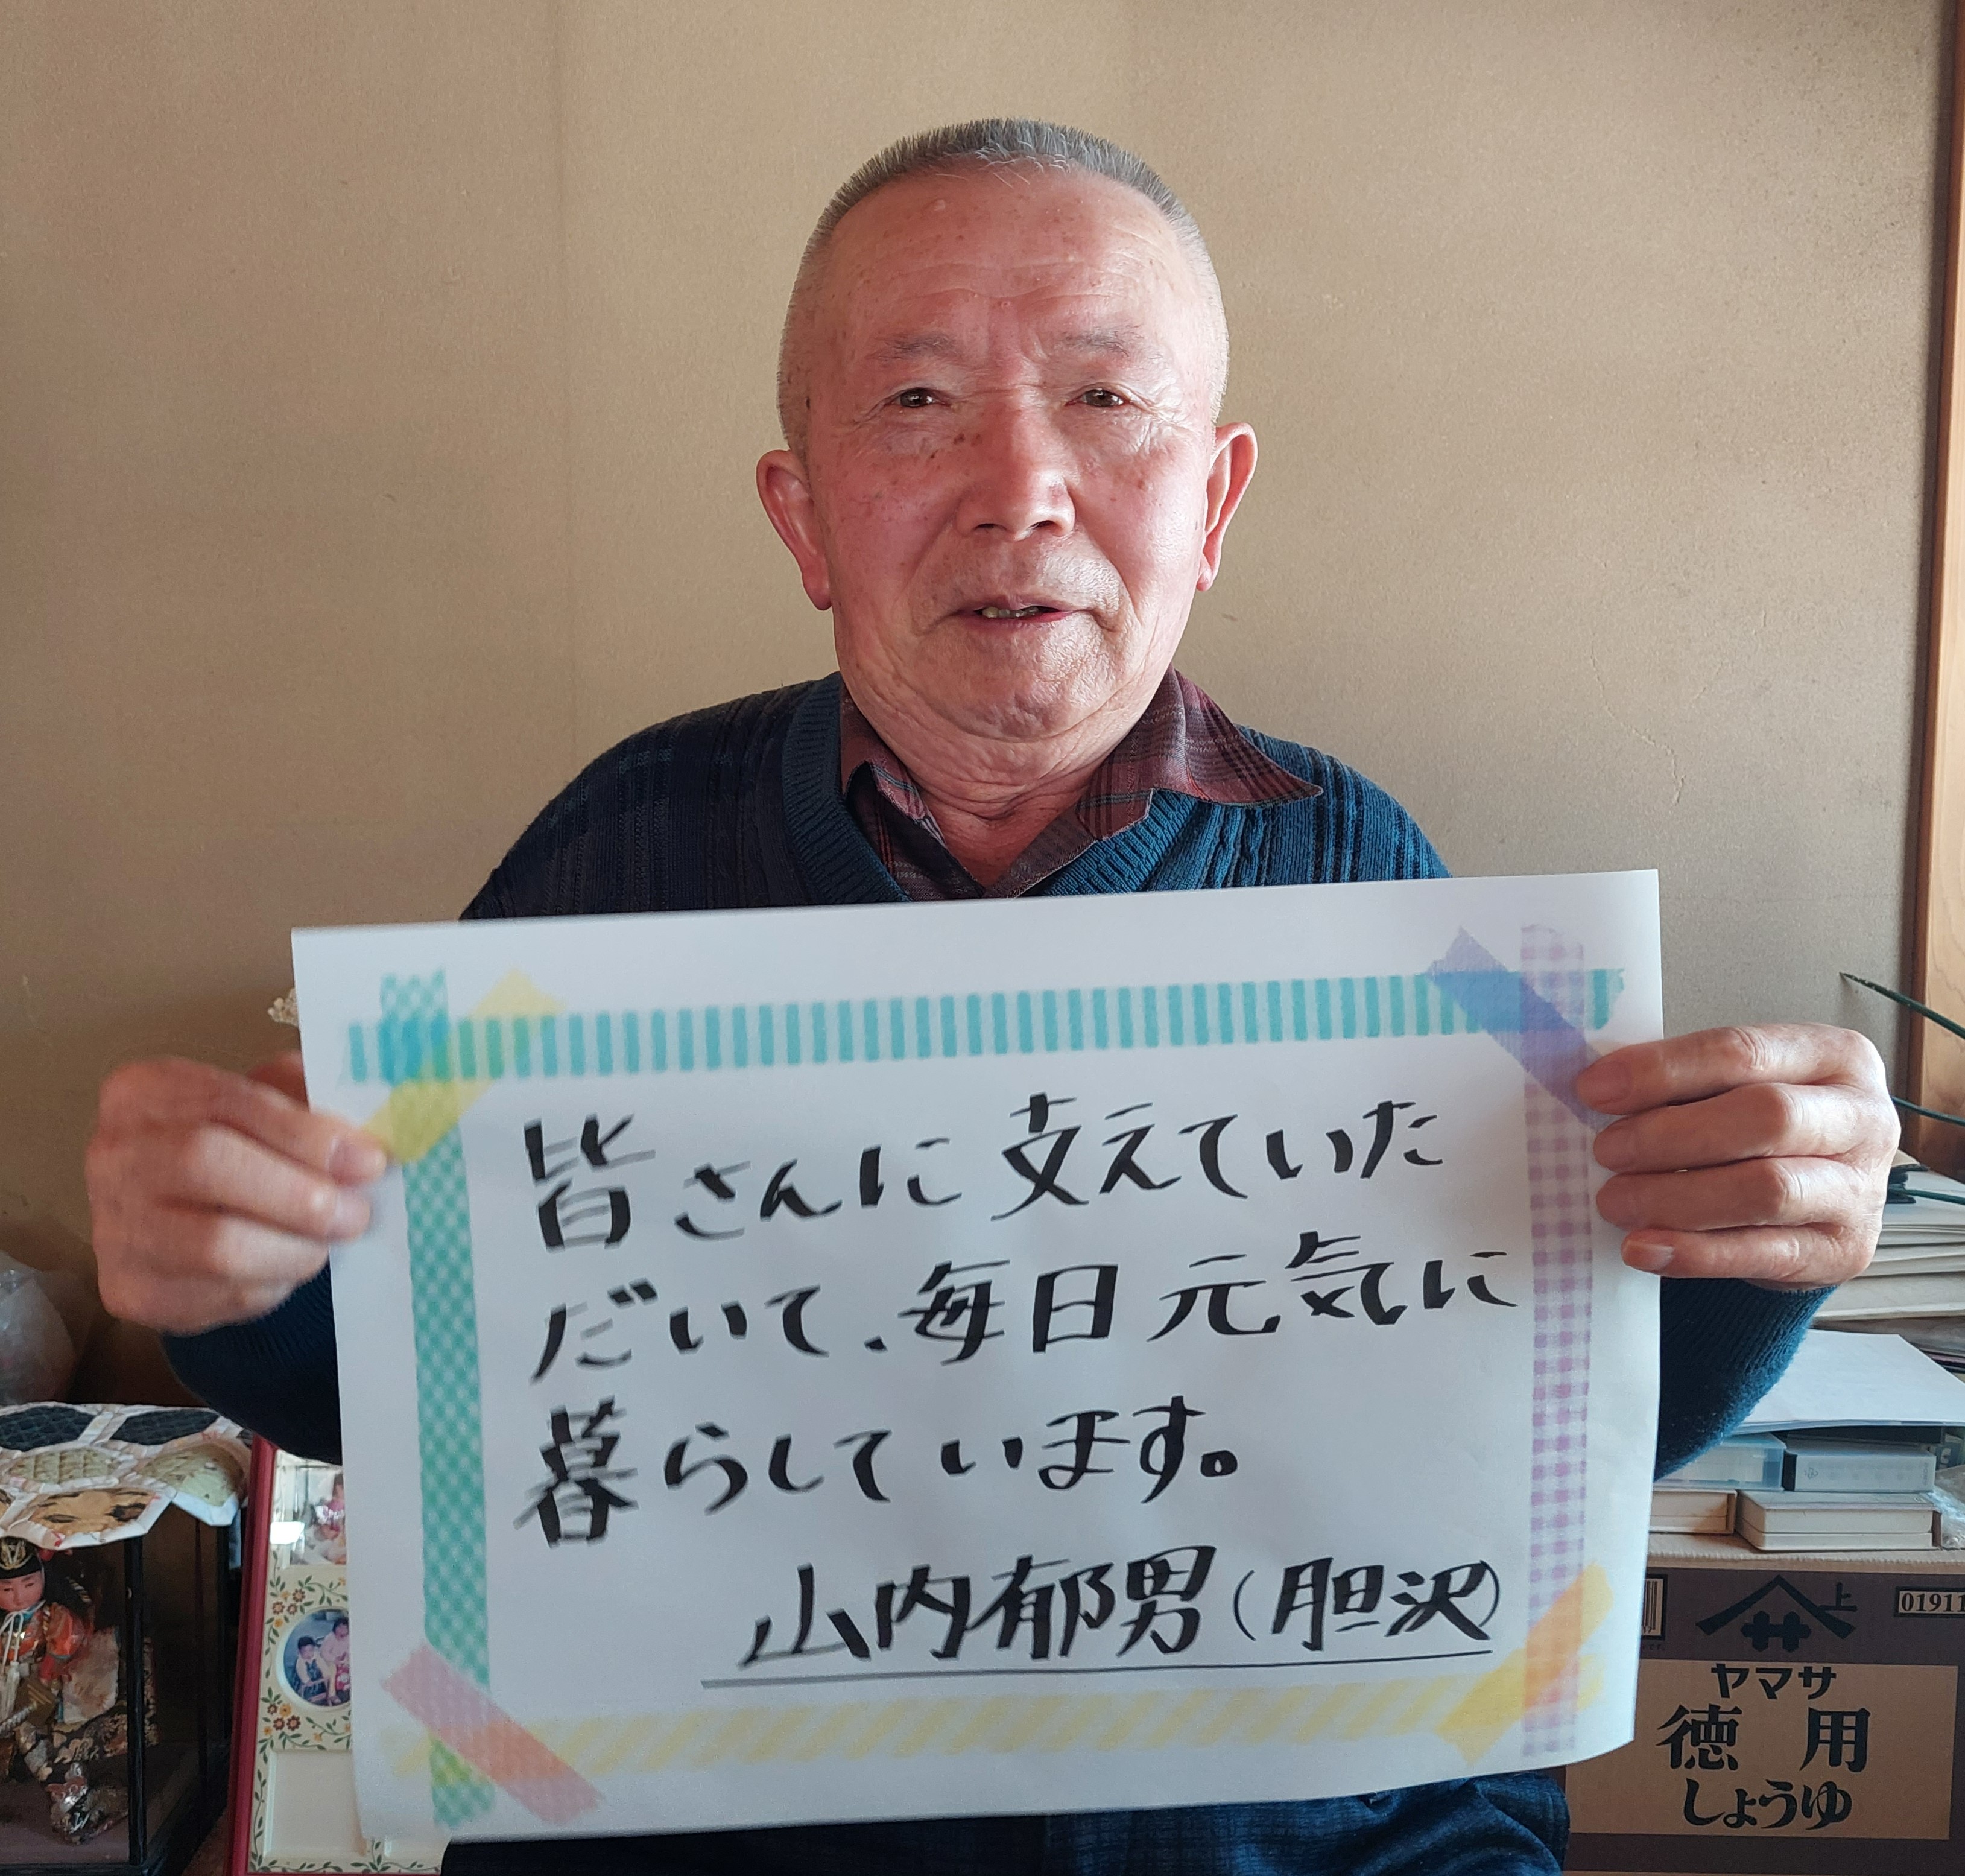 皆さんに支えていた
だいて、毎日元気に
暮らしています。
山内郁男(胆沢)
上
01911
ヤマサ
徳用
しょうゆ